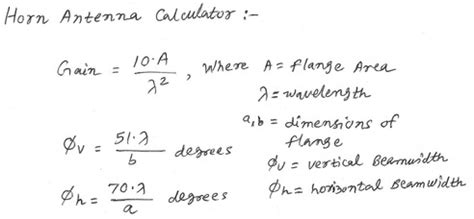 Horn Antenna Calculator :-
Gain = 10·A / λ² , Where A = flange Area
λ = wavelength
a,b = dimensions of flange
φv = 51·λ / b degrees
φv = vertical Beamwidth
φh = 70·λ / a degrees
φh = horizontal Beamwidth